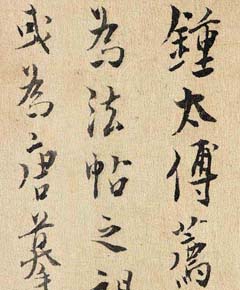 鍾太傅薦
為法帖之祖
或為唐摹